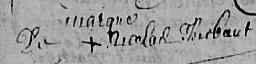 marque
De + Nicolas Thebaut